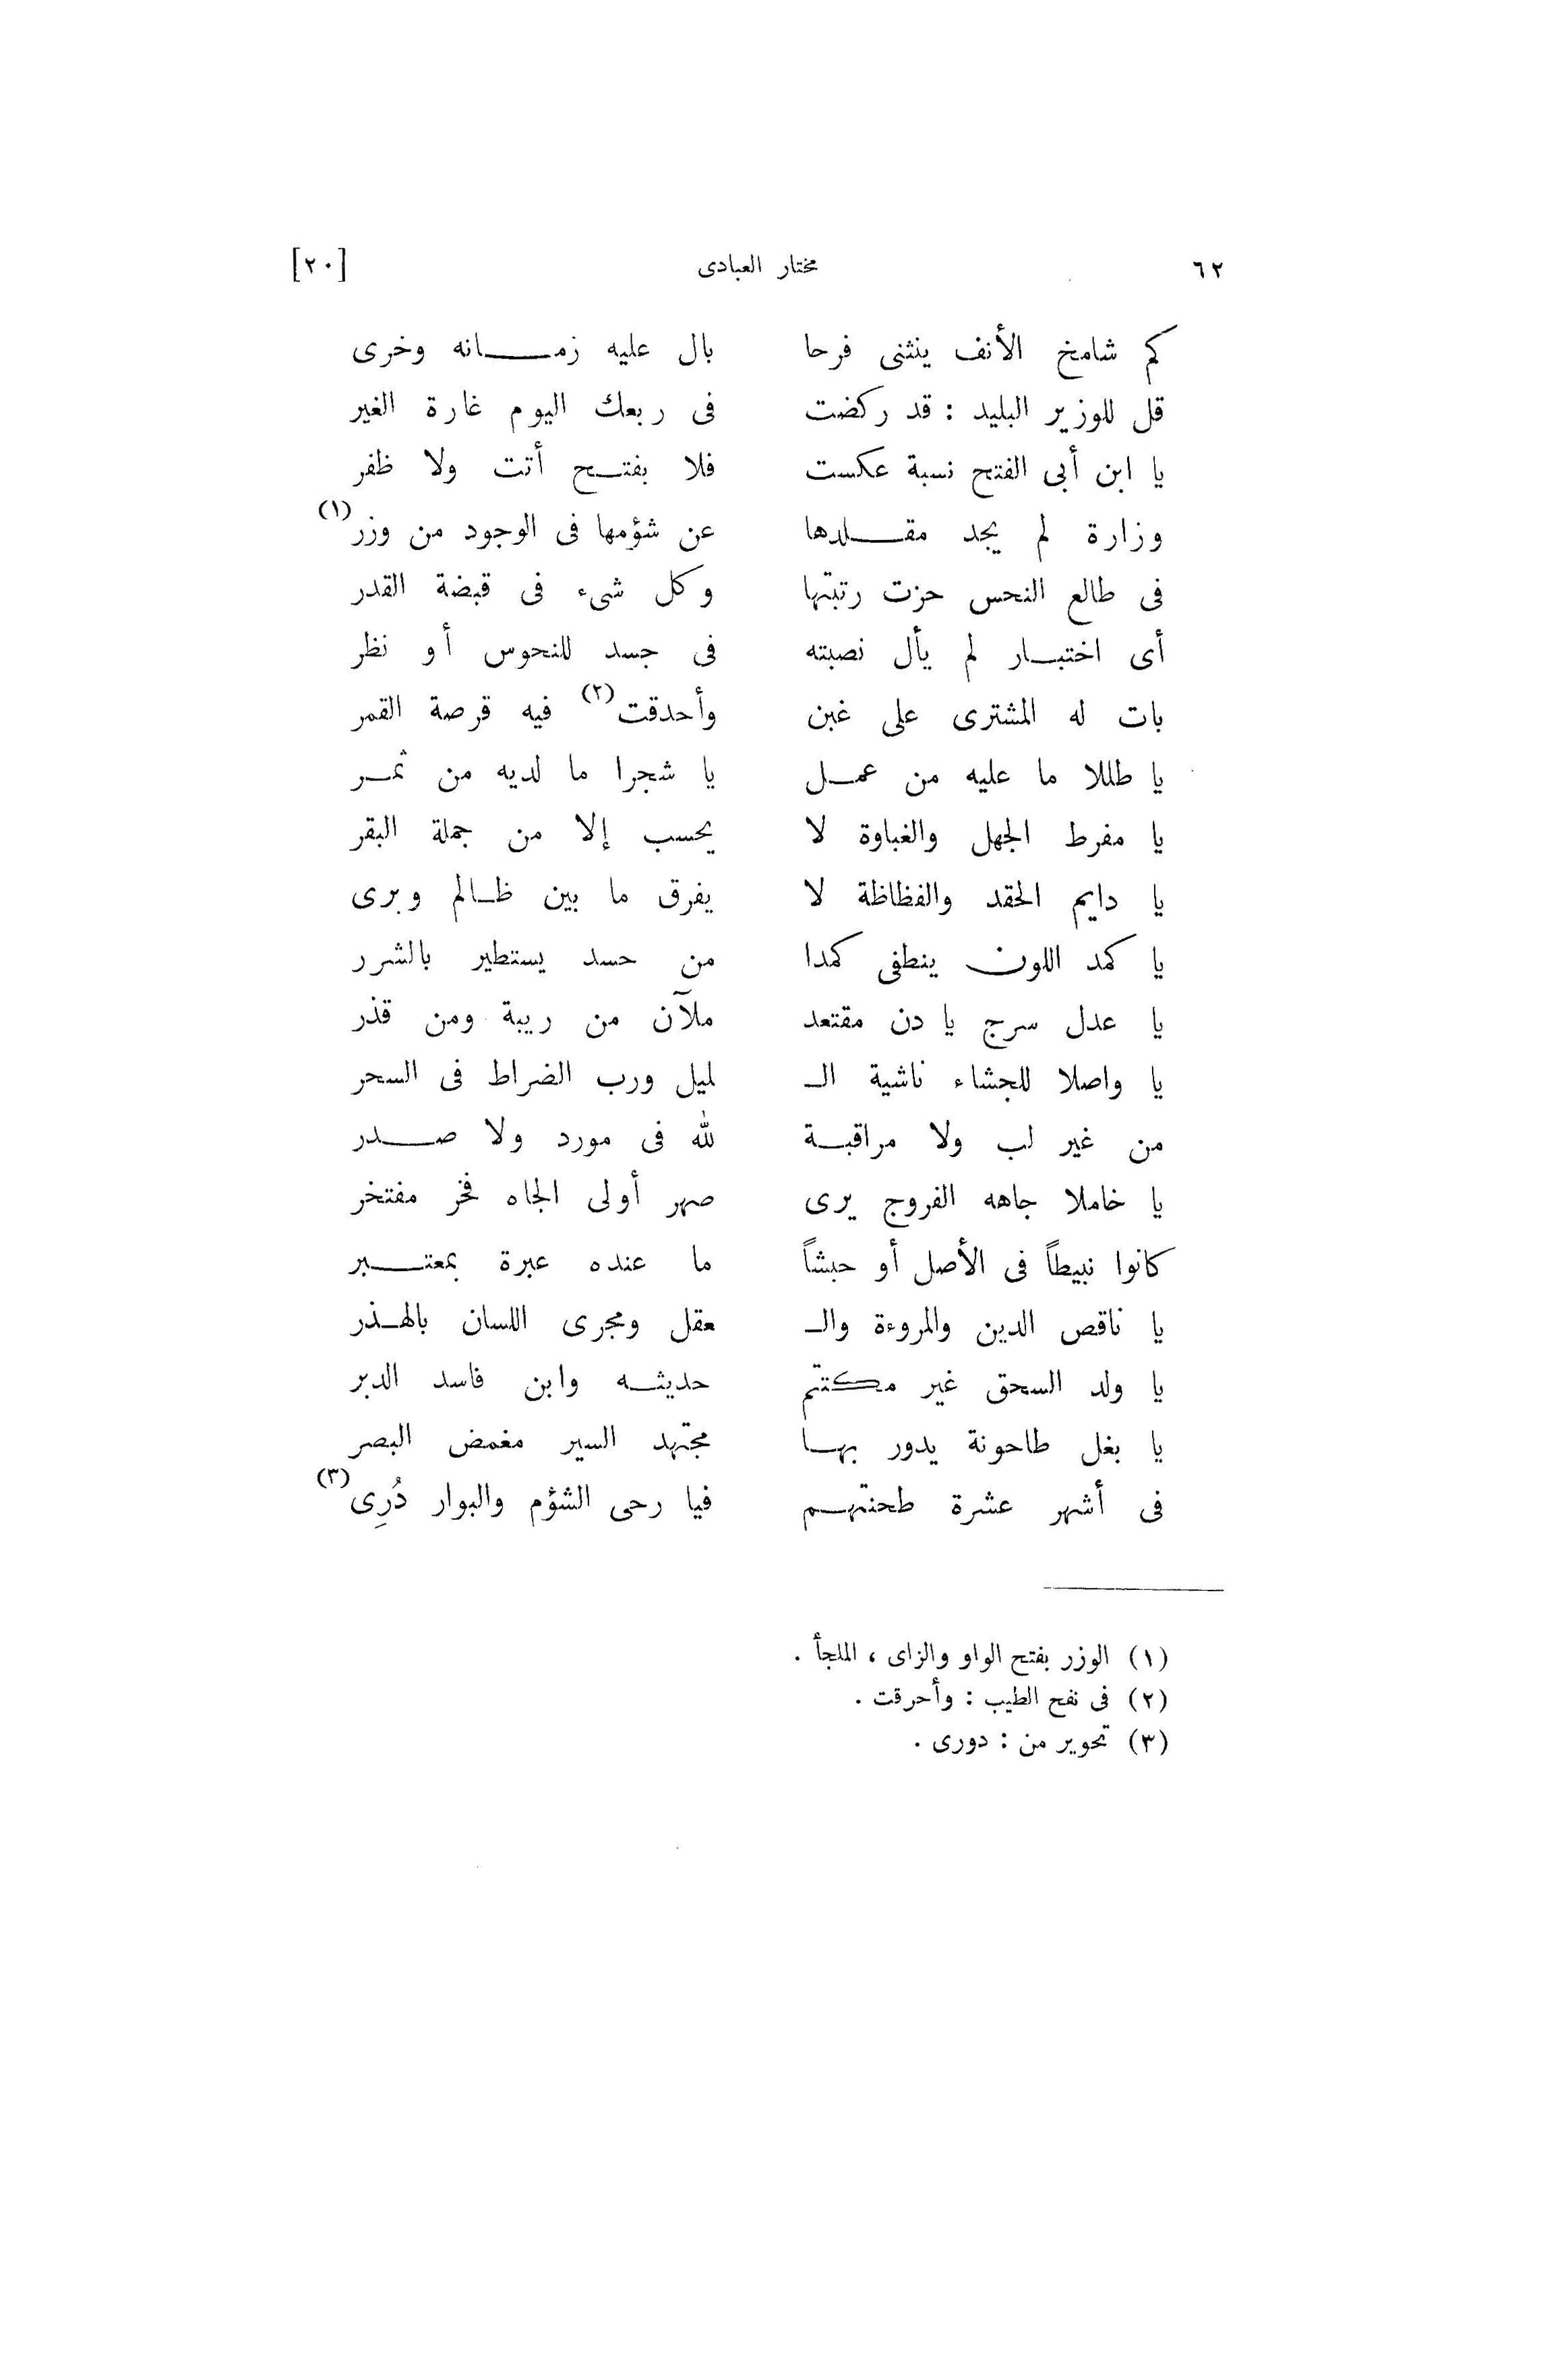 ٦٢ مختار العبادى [٢٠]
كم شامخ الأنف ينثنى فرحا بال عليه زمـــانه وخرى
قل للوزير البليد : قد ركضت فى ربعك اليوم غارة الغير
يا ابن أبى الفتح نسبة عكست فلا بفتـــح أتت ولا ظفر
وزارة لم يجد مقـــلدها عن شؤمها فى الوجود من وزر(١)
فى طالع النحس حزت رتبتها وكل شىء فى قبضة القدر
أى اختبـــار لم يأل نصبته فى جسد للنحوس أو نظر
بات له المشترى على غبن وأحدقت(٢) فيه قرصة القمر
يا طللا ما عليه من عمـــل يا شجرا ما لديه من ثمـــر
يا مفرط الجهل والغباوة لا يحسب إلا من جملة البقر
يا دايم الحقد والفظاظة لا يفرق ما بين ظـــالم وبرى
يا كمد اللون ينطفى كمدا من حسد يستطير بالشرر
يا عدل سرج يا دن مقتعد ملآن من ريبة ومن قذر
يا واصلا للجشاء ناشية الـ لميل ورب الضراط فى السحر
من غير لب ولا مراقبـــة لله فى مورد ولا صـــدر
يا خاملا جاهه الفروج يرى صهر أولى الجاه فخر مفتخر
كانوا نبيطاً فى الأصل أو حبشاً ما عنده عبرة بمعتـــبر
يا ناقص الدين والمروءة والـ معقل ومجرى اللسان بالهـــذر
يا ولد السحق غير مكتتم حديثـــه وابن فاسد الدبر
يا بغل طاحونة يدور بهـــا مجتهد السير مغمض البصر
فى أشهر عشرة طحنتهـــم فيا رحى الشؤم والبوار دُرِى(٣)
(١) الوزر بفتح الواو والزاى ، الملجأ .
(٢) فى نفح الطيب : وأحرقت .
(٣) تحوير من : دورى .